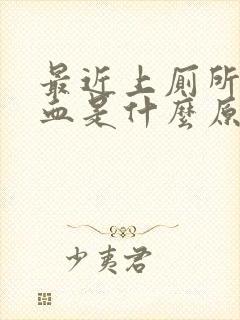 最近上厠所
血是什麼原
少夷君